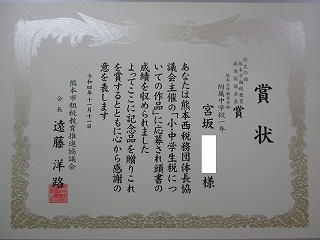 賞状
作文の部
熊本市租税教育
推進協議会長賞
熊本大学教育学部
附属中学校一年
宮坂 様
あなたは熊本西税務団体長協
議会主催の「小・中学生税につ
いての作品」に応募され頭書の
成績を収められました
よってここに記念品を贈りこれ
を賞するとともに心から感謝の
意を表します
令和四年十一月十一日
熊本市租税教育推進協議会
会長 遠藤洋路